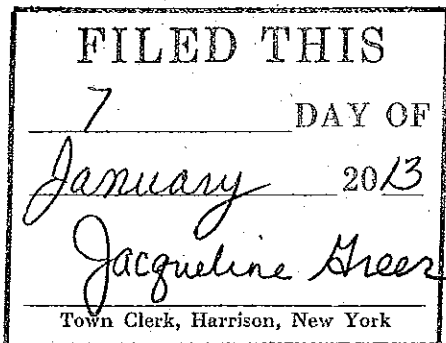 FILED THIS
7 DAY OF
January 2013
Jacqueline Greer
Town Clerk, Harrison, New York